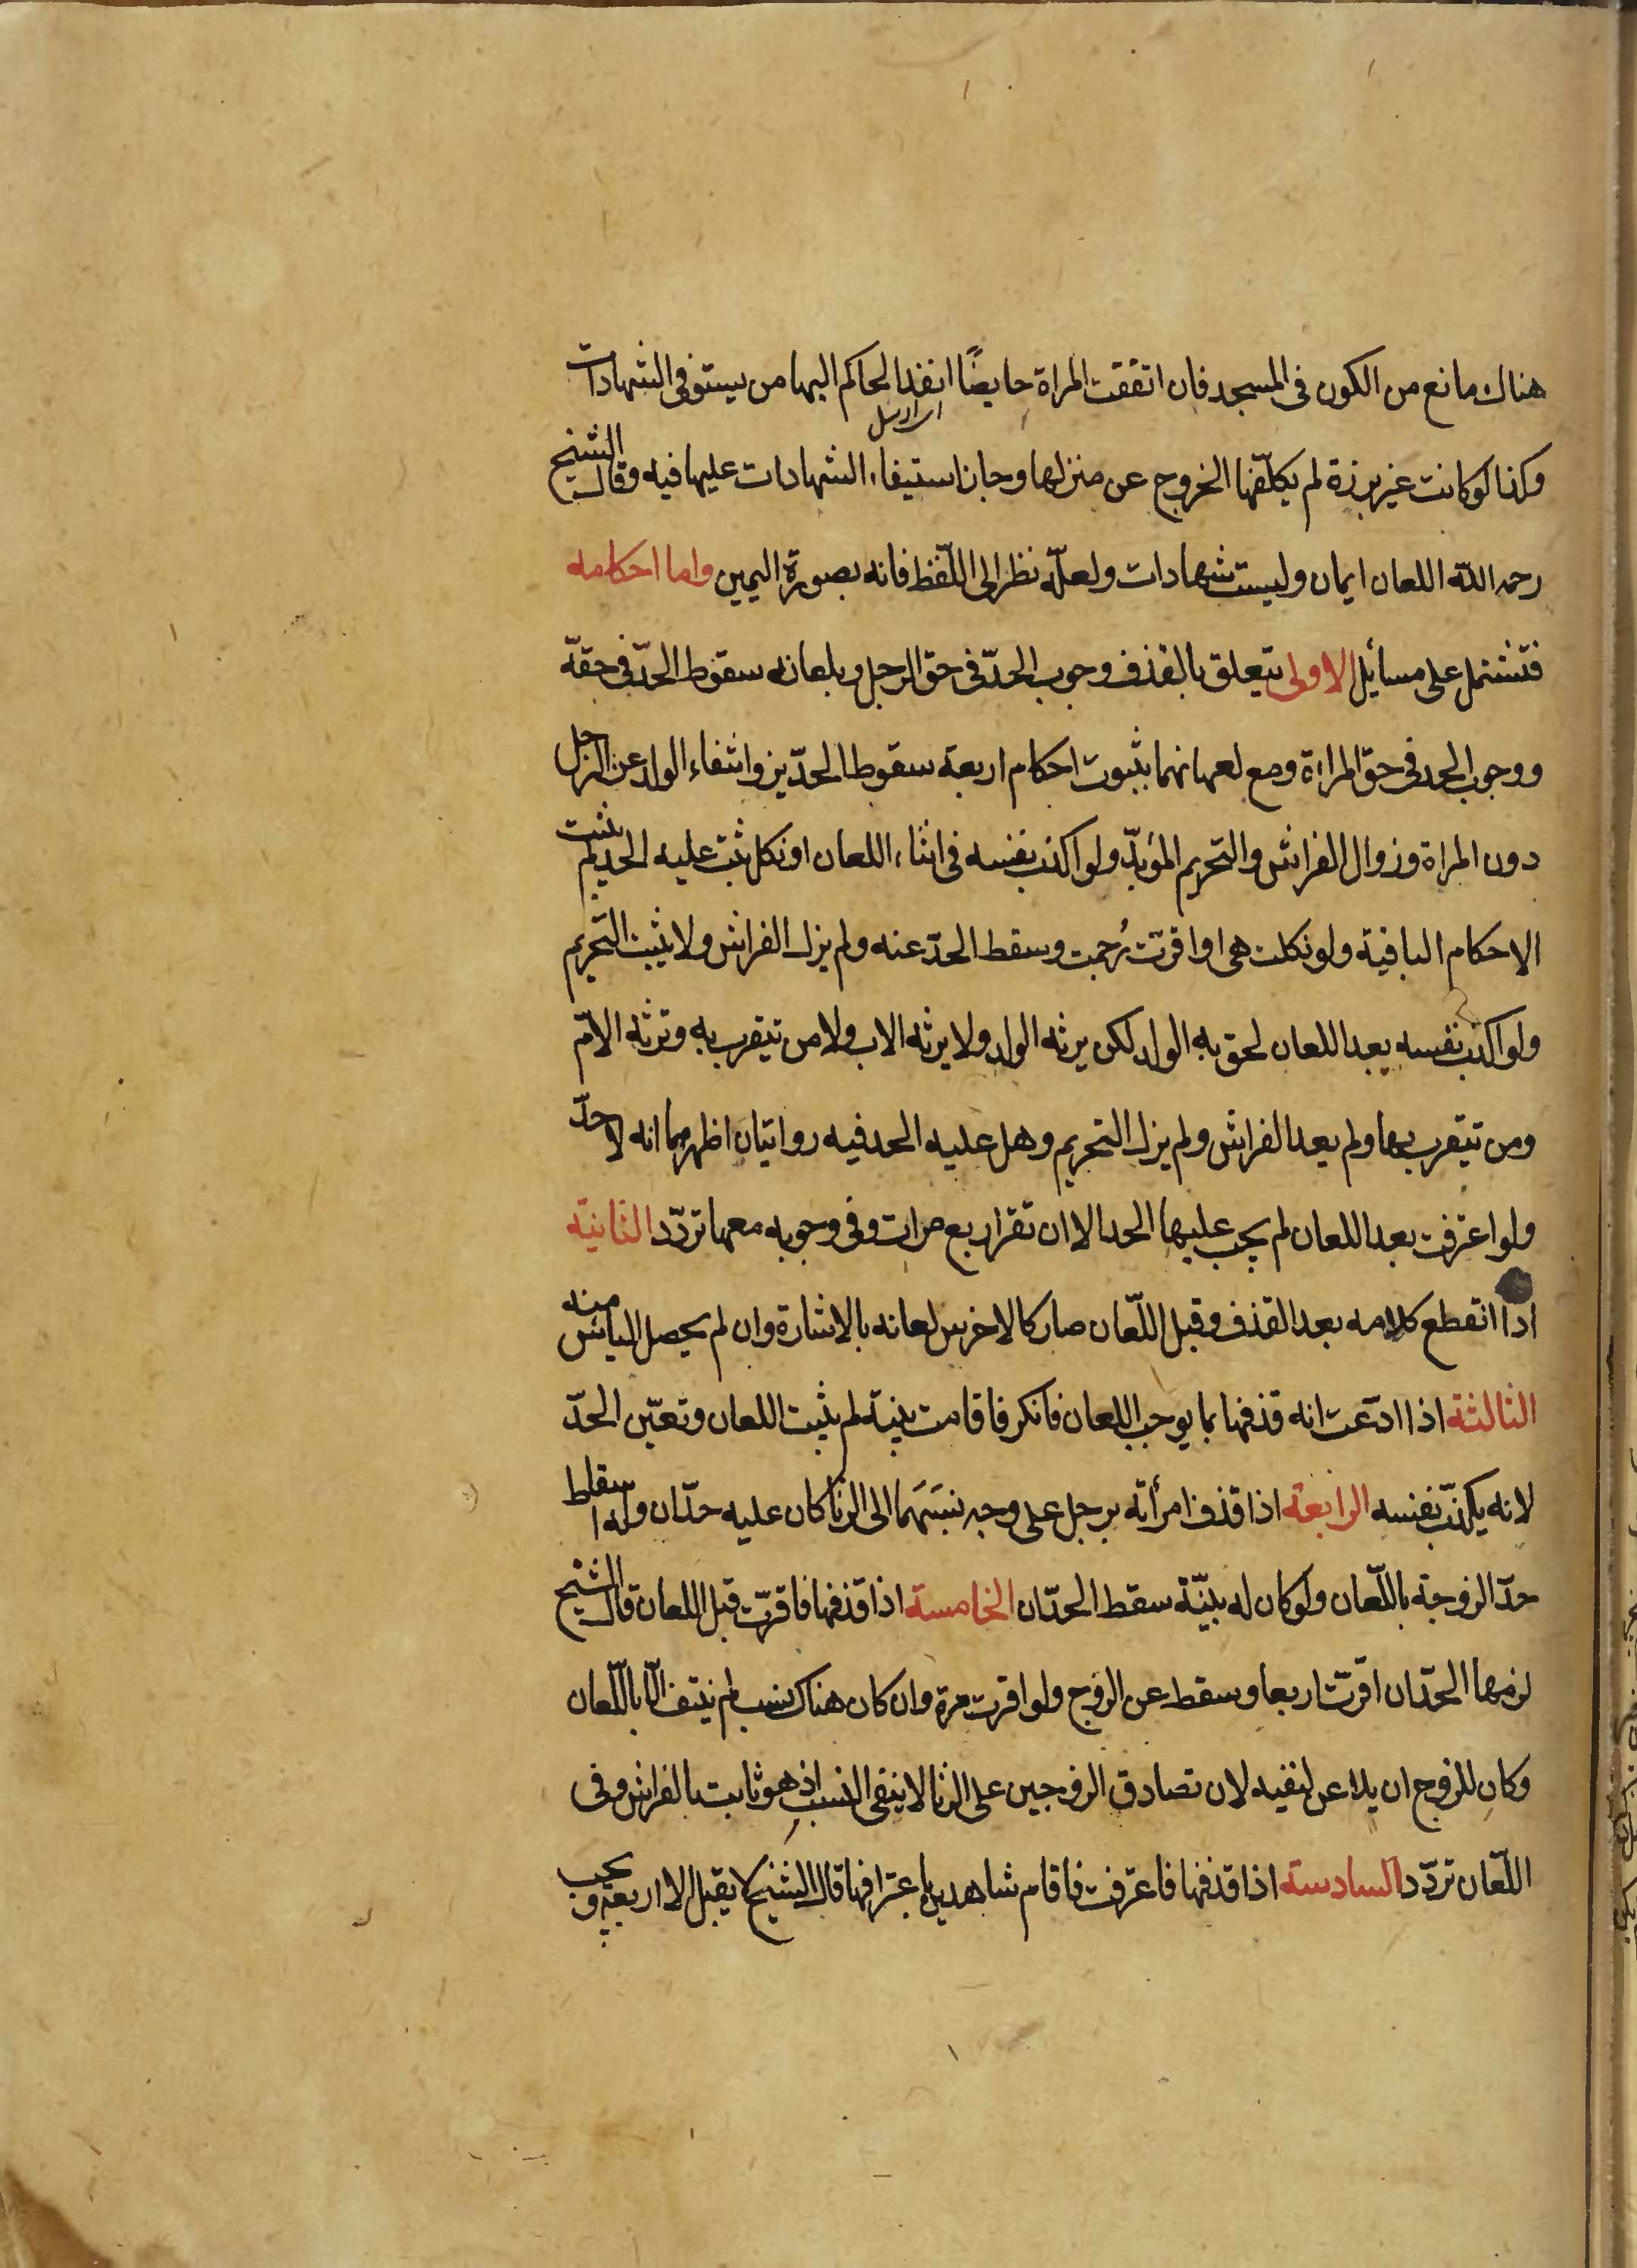 هناك مانع من الكون فى المسجد فان اتفقت المراة حايضًا انفذ الحاكم اليها من يستوفى الشهادات
اى ارسل
وكذا لو كانت غير برزة لم يكلّفها الخروج عن منزلها وجاز استيفاء الشهادات عليها فيه وقال الشيخ
رحمه الله اللعان ايمان وليست شهادات ولعلّه نظر الى اللّفظ فانه بصورة اليمين واما احكامه
فتشتمل على مسائيل الاولى يتعلق بالقذف وجوب الحدّ فى حق الرجل وبلعانه سقوط الحدّ فى حقه
ووجوب الحد فى حق المراة ومع لعانهما يثبوت احكام اربعة سقوط الحدّين وانتفاء الولد عن الرجل
دون المراة وزوال الفراش والتحريم المؤبدّ ولو اكذب نفسه فى اثناء اللعان او نكل ثبت عليه الحد ولم يثبت
الاحكام الباقية ولو نكلت هى او اقرّت رُجمت وسقط الحدّ عنه ولم يزل الفراش ولا يثبت التحريم
ولو اكذب نفسه بعد اللعان لحق به الولد لكن يرثه الولد ولا يرثه الاب ولا من تيقرب به وترثه الامّ
ومن تيقرب بها ولم يعد الفراش ولم يزل التحريم وهل عليه الحد فيه رواتيان اظهرهما انه لا حدّ
ولو اعترفت بعد اللعان لم يجب عليها الحد الا ان تقر اربع مرات وفى وجوبه معها تردّد الثانية
اذا انقطع كلامه بعد القذف وقبل اللّعان صار كالاخرس لعانه بالاشارة وان لم يحصل الياس منه
الثالثة اذا ادّعت انه قذفها بما يوجب اللعان فانكر فاقامت بينة لم يثبت اللعان وتعيّن الحدّ
لانه يكذّب نفسه الرابعة اذا قذف امرأته برجل على وجه نسبَهَما الى الزنا كان عليه حدّان وله اسقاط
حدّ الزوجة باللّعان ولو كان له بيّنة سقط الحدّان الخامسة اذا قذفها فاقرّت قبل اللعان قال الشيخ
لزمها الحدّ ان اقرّت اربعا وسقط عن الزوج ولو اقرت مرة وان كان هناك نسب لم ينتف الّا باللّعان
وكان للزوج ان يلاعن لنفيه لان تصادق الزوجين على الزنا لا ينفى النسب اذ هو ثابت بالفراش وفى
اللّعان تردّد السادسة اذا قذفها فاعترفت فاقام شاهدين باعترافها قال الشيخ لا يقبل الا اربعة ويجب